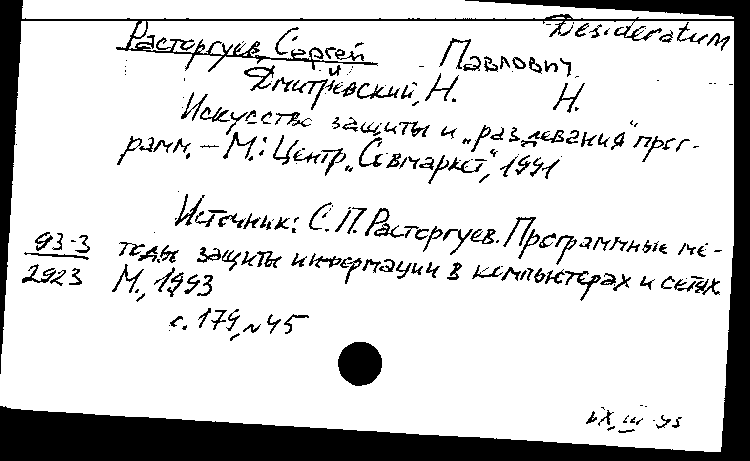 Desideratum
Расторгуев, Сергей Павлович
Дмитриевский, Н. Н.
Искусство защиты и „раздевания" прог-
рамм. – М.: Центр „Совмаркет", 1991
Источник: С.П. Расторгуев. Программные ме-
93-3 тоды защиты информации в компьютерах и сетях.
2923 М., 1993
с. 179, №45